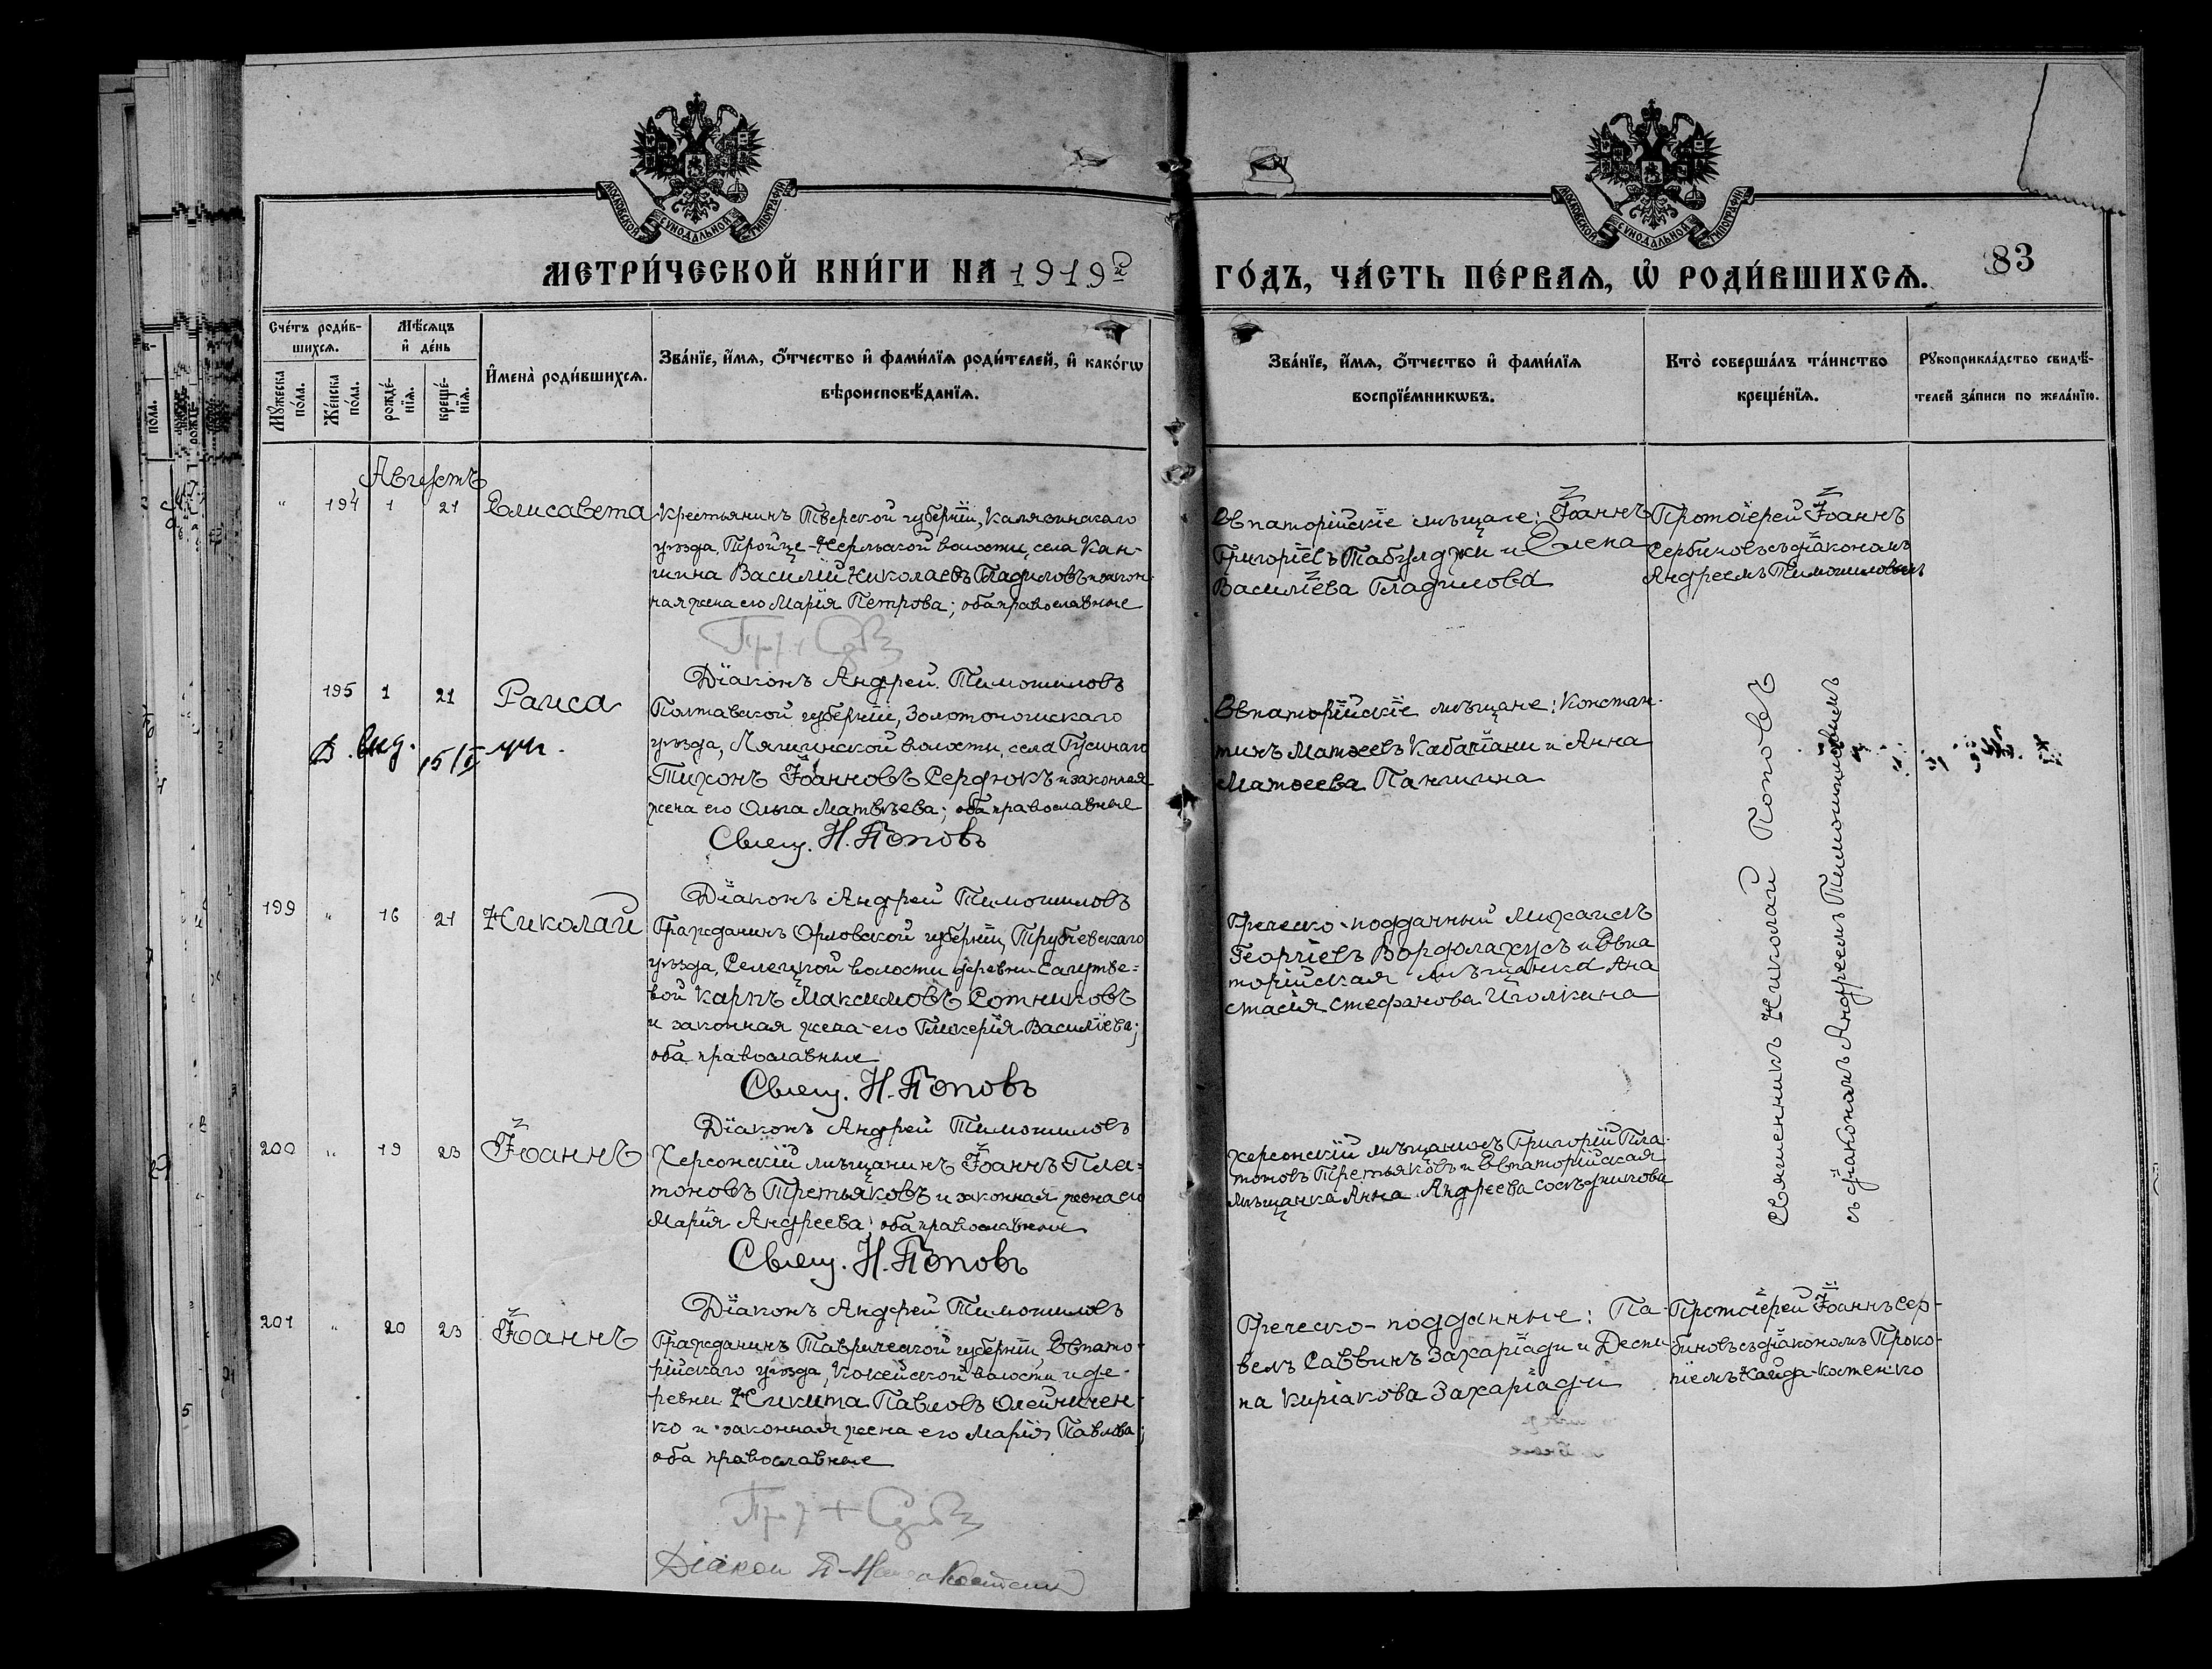 МОСКОВСКОЙ СѴНОДАЛЬНОЙ ТИПОГРАФІИ
МОСКОВСКОЙ СѴНОДАЛЬНОЙ ТИПОГРАФІИ
МЕТРИ́ЧЕСКОЙ КНИ́ГИ НА 1919й
ГО́ДЪ, ЧА́СТЬ ПЕ́РВАѦ, Ѽ РОДИ́ВШИХСѦ.
83
Сче́тъ роди́в-
шихсѧ.
Мꙋ́жеска по́ла.
Же́нска по́ла.
Мѣ́сѧцъ
и҆ де́нь
рожде́-
нїѧ.
креще́-
нїѧ.
И҆мена̀ роди́вшихсѧ.
Зва́нїе, и҆́мѧ, ѻ҆́тчество и҆ фами́лїѧ роди́телей, и҆ како́гѡ
вѣроисповѣ́данїѧ.
Зва́нїе, и҆́мѧ, ѻ҆́тчество и҆ фами́лїѧ
воспрїе́мникѡвъ.
Кто̀ соверша́лъ та́инство
креще́нїѧ.
Рꙋкоприкла́дство свидѣ́-
телей за́писи по жела́нїю.
Августъ
" 194 1 21 Елисавета
Крестьянинъ Тверской губерніи, Калязинскаго
уѣзда, Тройце-Нерльской волости, села Кан-
шина Василій Николаевъ Гладиловъ и закон-
ная жена его Марія Петрова; оба православные
Евпаторійскіе мѣщане: Іоаннъ
Григоріевъ Табулджи и Елена
Василіева Гладилова
Протоіерей Іоаннъ
Сербиновъ съ діакономъ
Андреемъ Тимошиловымъ
Діаконъ Андрей Тимошиловъ
195 1 21 Раиса
Полтавской губерніи, Золотоношскаго
уѣзда, Ляшинской волости, села Гусинаго
Тихонъ Іоанновъ Сердюкъ и законная
жена его Ольга Матвѣева; оба православные
В. вид. 15/X
Свящ. Н. Поповъ
Евпаторійскіе мѣщане: Констан-
тинъ Матѳеевъ Кабачіани и Анна
Матѳеева Паншина
Діаконъ Андрей Тимошиловъ
199 " 16 21 Николай
Гражданинъ Орловской губерніи, Трубчевскаго
уѣзда, Селецкой волости деревни
вой Карпъ Максимовъ Сотниковъ
и законная жена его Гликерія Василіева;
оба православные
Свящ. Н. Поповъ
Греческо-подданный Михаилъ
Георгіевъ Вордолахусъ и Евпа
торійская мѣщанка Ана
стасія Стефанова Иголкина
Священникъ Николай Поповъ
съ діакономъ Андреемъ Тимошиловымъ
Діаконъ Андрей Тимошиловъ
200 " 19 23 Іоаннъ
Херсонскій мѣщанинъ Іоаннъ Пла-
тоновъ Третьяковъ и законная жена его
Марія Андреева; оба православные
Свящ. Н. Поповъ
Херсонскій мѣщанинъ Григорій Пла-
тоновъ Третьяковъ и Евпаторійская
мѣщанка Анна Андреева
Діаконъ Андрей Тимошиловъ
201 " 20 23 Іоаннъ
Гражданинъ Таврической губерніи Евпато-
рійскаго уѣзда, Кокейской волости и де-
ревни Никита Павловъ Олейничен-
ко и законная жена его Марія Павлова;
оба православные
Греческо-подданные: Па-
велъ Саввинъ Захаріади и Деспи-
на Киріакова Захаріади
Протоіерей Іоаннъ Сер-
биновъ съ діакономъ Проко-
піемъ Найда-Костенко
Діакон П.